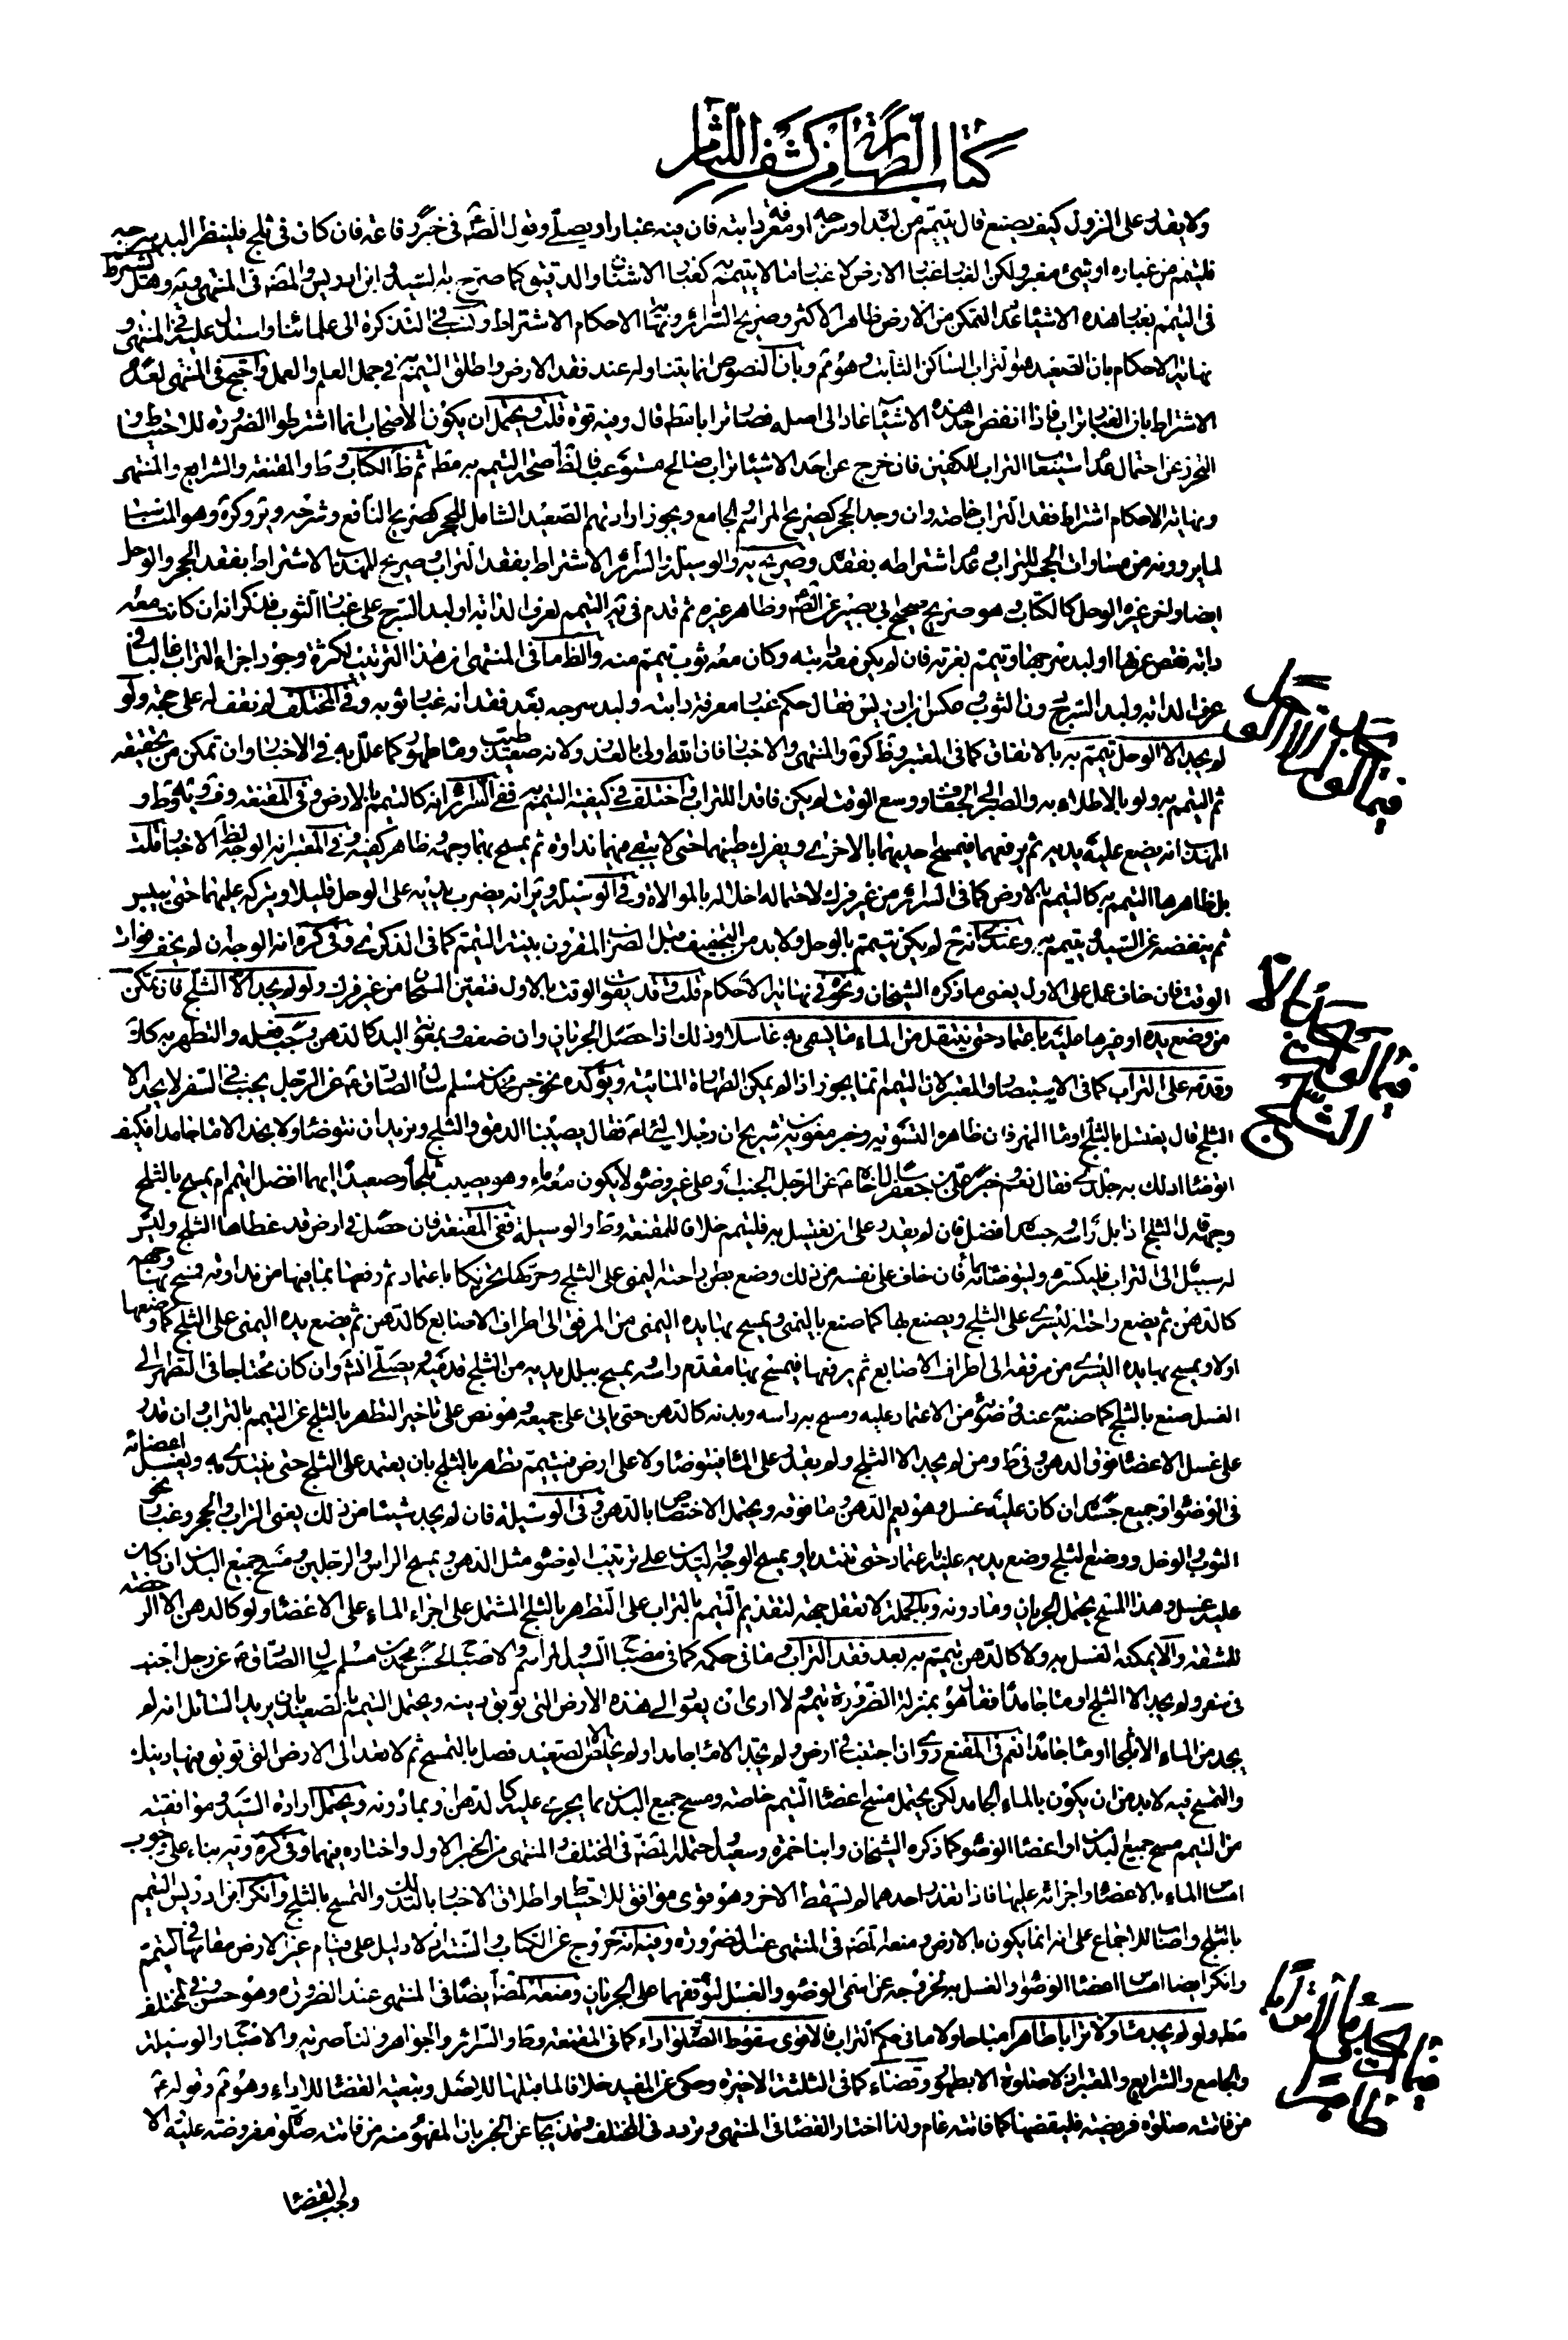 كتاب الطهارة من كشف اللثام
ولا يقدر على النزول كيف يصنع قال يتيمم من لبده او سرجه او معرفة دابته فان فيه غبارا ويصلي وقول الصادق في خبر رفاعة فان كان في ثلج فلينظر لبد سرجه
فليتيمم من غباره او شيء مغبر ولكن الغبار غبار الارض لا غبار ما لا يتيمم به كغبار الاشنان والدقيق كما صرح به السيد وابن ادريس والمصنف في المنتهى ويه وهل يشترط
في التيمم بغبار هذه الاشياء عدم التمكن من الارض ظاهر الاكثر وصريح السرائر ونهاية الاحكام الاشتراط ونسب في التذكرة الى علمائنا واستدل عليه في المنتهى و
نهاية الاحكام بان الصعيد هو التراب الساكن الثابت وهو ثم وبان النصوص انما يتناوله عند فقد الارض واطلق التيمم به في جمل العلم والعمل واحتج في المنتهى لعدم
الاشتراط بان الغبار تراب فاذا انفض احد هذه الاشياء عاد الى اصله فصار ترابا مط قال وفيه قوة قلت ويحتمل ان يكون الاصحاب انما اشترطوا الضرورة للاحتياط و
التحرز عن احتمال عدم استيعاب التراب للكفين فان خرج عن احد الاشياء تراب صالح مستوعب فالظ صحة التيمم به مط ثم ظ الكتاب وط والمقنعة والشرايع والمنتهى
ونهاية الاحكام اشتراط فقد التراب خاصة وان وجد الحجر كصريح المراسم والجامع ويجوز ارادتهم الصعيد الشامل للحجر كصريح النافع وشرحه وير وكره وهو المناسب
لما يرونه من مساواة الحجر للتراب او عدم اشتراطه بفقده وصريح يه والوسيلة والسرائر الاشتراط بفقد التراب وصريح المهذب الاشتراط بفقد الحجر والوحل
ايضا واخر غيره الوحل كالكتاب وهو صريح صحيح ابي بصير عن الصادق وظاهر غيره ثم قدم في يه التيمم بعرف الدابة او لبد السرج على غبار الثوب فذكر انه ان كانت معه
دابة نفض عرفها او لبد سرجها وتيمم بغبرته فان لم يكن معه دابته وكان معه ثوب تيمم منه والظ ما في المنتهى من ان هذا الترتيب لكثرة وجود اجزاء التراب غالبا في
عرف الدابة ولبد السرج دون الثوب وعكس ابن ادريس فقال حكم غبار معرفة دابته ولبد سرجه بعد فقدانه غبار ثوبه وفي المختلف لم نقف له على حجة ولو
لم يجد الا الوحل تيمم به بالاتفاق كما في المعتبر وظ كره والمنتهى والاخبار فان الله اولى بالعذر ولانه صعيد طيب وماء طهور كما علل به في الاخبار وان تمكن من تجفيفه
ثم التيمم به ولو بالاطلاء به والصبر الى الجفاف ووسع الوقت لم يكن فاقدا للتراب واختلف في كيفية التيمم به ففي السرائر انه كالتيمم بالارض وفي المقنعة وف ويه وط و
المهذب انه يضع عليه يديه ثم يرفعهما فيمسح احديهما بالاخرى ويفرك طينهما حتى لا يبقى فيهما نداوة ثم يمسح بهما وجهه وظاهر كفيه وفي المعتبر انه الوجه لظ الاخبار قلت
بل ظاهرها التيمم به كالتيمم بالارض كما في السرائر من غير فرك لاحتماله اخلاله بالموالاة وفي الوسيلة وير انه يضرب يديه على الوحل قليلا ويتركه عليهما حتى ييبس
ثم ينفضه عن اليد ويتيمم به وعندي انه لم يكن تيمم بالوحل ولابد من التجفيف قبل الضرب المقرون بنية التيمم كما في الذكرى وفي كره انه الوجه ان لم يخف فوات
الوقت فان خاف عمل على الاول يعني ما ذكره الشيخان ونحوه في نهاية الاحكام قلت وقد يفوت الوقت بالاول فتعين المسحات من غير فرك ولو لم يجد الا الثلج فان تمكن
من وضع يده او غيرها عليه باعتماد حتى ينتقل من الماء ما يسمى به غاسلا وذلك اذا حصل الجريان وان ضعف ويمغو اليد كالدهن وجب فعله والتطهر به كلا
وقدمه على التراب كما في الاستبصار والمعتبر لان التيمم انما يجوز اذا لم يمكن الطهارة المائية ويؤكده نحو خبر محمد بن مسلم سال الصادق عن الرجل يجنب في السفر لا يجد الا
الثلج قال يغتسل بالثلج او ماء النهر فان ظاهره التسوية وخبر معوية بن شريح ان رجلا ساله فقال يصيبنا الدمق والثلج ونريد ان نتوضأ ولا نجد الا ماء جامدا فكيف
اتوضأ ادلك به جلدي فقال نعم وخبر علي بن جعفر سال اخاه عن الرجل الجنب او على غير وضوء لا يكون معه ماء وهو يصيب ثلجا وصعيدا ايهما افضل ايتيمم ام يمسح بالثلج
وجهه قال الثلج اذا بل راسه وجسده افضل فان لم يقدر على ان يغتسل به فليتيمم خلافا للمقنعة وط والوسيلة ففي المقنعة فان حصل في ارض قد غطاها الثلج وليس
له سبيل الى التراب فليكسره وليتوضأ بمائه فان خاف على نفسه من ذلك وضع بطن راحته اليمنى على الثلج وحركها تحريكا باعتماد ثم رفعها بما فيها من نداوته فمسح بها وجهه
كالدهن ثم يضع راحته اليسرى على الثلج ويصنع بها كما صنع باليمنى ويمسح بها يده اليمنى من المرفق الى اطراف الاصابع كالدهن ثم يضع يده اليمنى على الثلج كما وضعها
اولا ويمسح بها يده اليسرى من مرفقه الى اطراف الاصابع ثم يرفعها فيمسح بها مقدم راسه ويمسح ببلل يديه من الثلج قدميه ويصلي انش وان كان محتاجا في التطهر الى
الغسل صنع بالثلج كما صنع به عند وضوئه من الاعتماد عليه ومسح به راسه وبدنه كالدهن حتى ياتي على جميعه وهو نص على تاخير التطهر بالثلج عن التيمم بالتراب وان قدر
على غسل الاعضاء فوق الدهن وفي ط ومن لم يجد الا الثلج ولم يقدر على الماء فيتوضا ولا على ارض فيتيمم تطهر بالثلج بان يعتمد على الثلج حتى تبتدى يده ويغسل اعضائه
في الوضوء او جميع جسده ان كان عليه غسل وهو يعم الدهن وما فوقه ويحتمل الاختصاص بالدهن وفي الوسيلة فان لم يجد شيئا من ذلك يعني التراب والحجر وغبار نحو
الثوب والوحل ووضع الثلج وضع يديه عليه باعتماد حتى تبتديا ويمسح الوجه واليدين على ترتيب الوضوء مثل الدهن ويمسح الراس والرجلين ومسح جميع البدن ان كان
عليه غسل وهذا المسح يحتمل الجريان وما دونه وبالجملة لا تعقل جهة لتقديم التيمم بالتراب على التطهر بالثلج المشتمل على اجراء الماء على الاعضاء ولو كالدهن الا الرخصة
للمشقة والا يمكنه الغسل به ولا كالدهن تيمم به بعد فقد التراب وما في حكمه كما في مصباح السيد والمراسم والاصباح لحسن محمد بن مسلم سال الصادق عن رجل اجنب
في سفر ولم يجد الا الثلج او ماء جامدا فقال هو بمنزلة الضرورة يتيمم ولا ارى ان يعود الى هذه الارض التي توبق دينه ويحتمل التيمم بالصعيد بان يريد السائل انه لم
يجد من الماء الا ثلجا او ماء جامدا نعم في المقنع روي وان اجنبت في ارض ولم تجد الا ماء جامدا ولم تخلص الى الصعيد فصل بالتمسح ثم لا تعد الى الارض التي توبق فيها دينك
والتمسح فيه لابد من ان يكون بالماء الجامد لكن يحتمل مسح اعضاء التيمم خاصة ومسح جميع البدن بما يجري عليه كالدهن وبما دونه ويحتمل ارادة السيد وموافقيه
من التيمم مسح جميع البدن او اعضاء الوضوء كما ذكره الشيخان وابنا حمزة وسعيد واحتمله المصنف في المختلف والمنتهى من الخبر الاول واختاره فيهما وفي كره ويه بناء على وجوب
امساس الماء بالاعضاء واجرائه عليها فاذا تعذر احدهما لم يسقط الاخر وهو قوي موافق للاحتياط واطلاق الاخبار بالدلك والتمسح بالثلج وانكر ابن ادريس التيمم
بالثلج واصاب للاجماع على انه انما يكون بالارض ومنعه المصنف في المنتهى عند الضرورة وفيه انه خروج عن الكتاب والسنة اذ لا دليل على قيام غير الارض مقامها في التيمم
وانكر ايضا امساس اعضاء الوضوء والغسل به لخروجه عن اسمي الوضوء والغسل لتوقفهما على الجريان ومنعه المصنف ايضا في المنتهى عند الضرورة وهو حسن وفي المختلف
مط ولو لم يجد ماء ولا ترابا طاهرا مباحا ولا ما في حكم التراب فالاقوى سقوط الصلوة اداء كما في المقنعة وط والسرائر والجواهر والناصرية والاصباح والوسيلة
والجامع والشرايع والمعتبر اذ لا صلوة الا بطهور وقضاء كما في الثلثة الاخيرة وحكى عن المفيد خلافا لما قبلها للاصل وتبعية القضاء للاداء وهو ثم وقوله
من فاتته صلوة فريضة فليقضها كما فاتته عام ولذا اختار القضاء في المنتهى وتردد في المختلف وقد يجاب عن الخبر بان المفهوم منه من فاتته صلوة مفروضة عليه الا
ولو لم يجد الا الوحل
فيما لو لم يجد الا
الثلج
فيما لو لم يجد ماء ولا ترابا
طاهرا
واجب القضاء